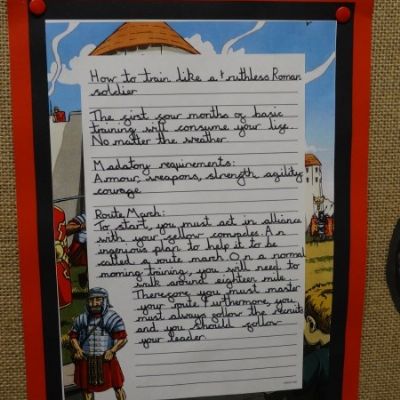 How to train like a ruthless Roman
soldier
The first four months of basic
training will consume your life.
No matter the weather.
Madatory requirements:
Amour, weapons, strength, agility,
courage
Route March:
To start, you must act in alliance
with your fellow comrades. An
ingenious plan to help it to be
called a route march. On a normal
morning training, you will need to
walk around eighteen mile
Therefore, you must master
your route. Furthermore, you
must always follow the recruits
and you should follow
your leader.